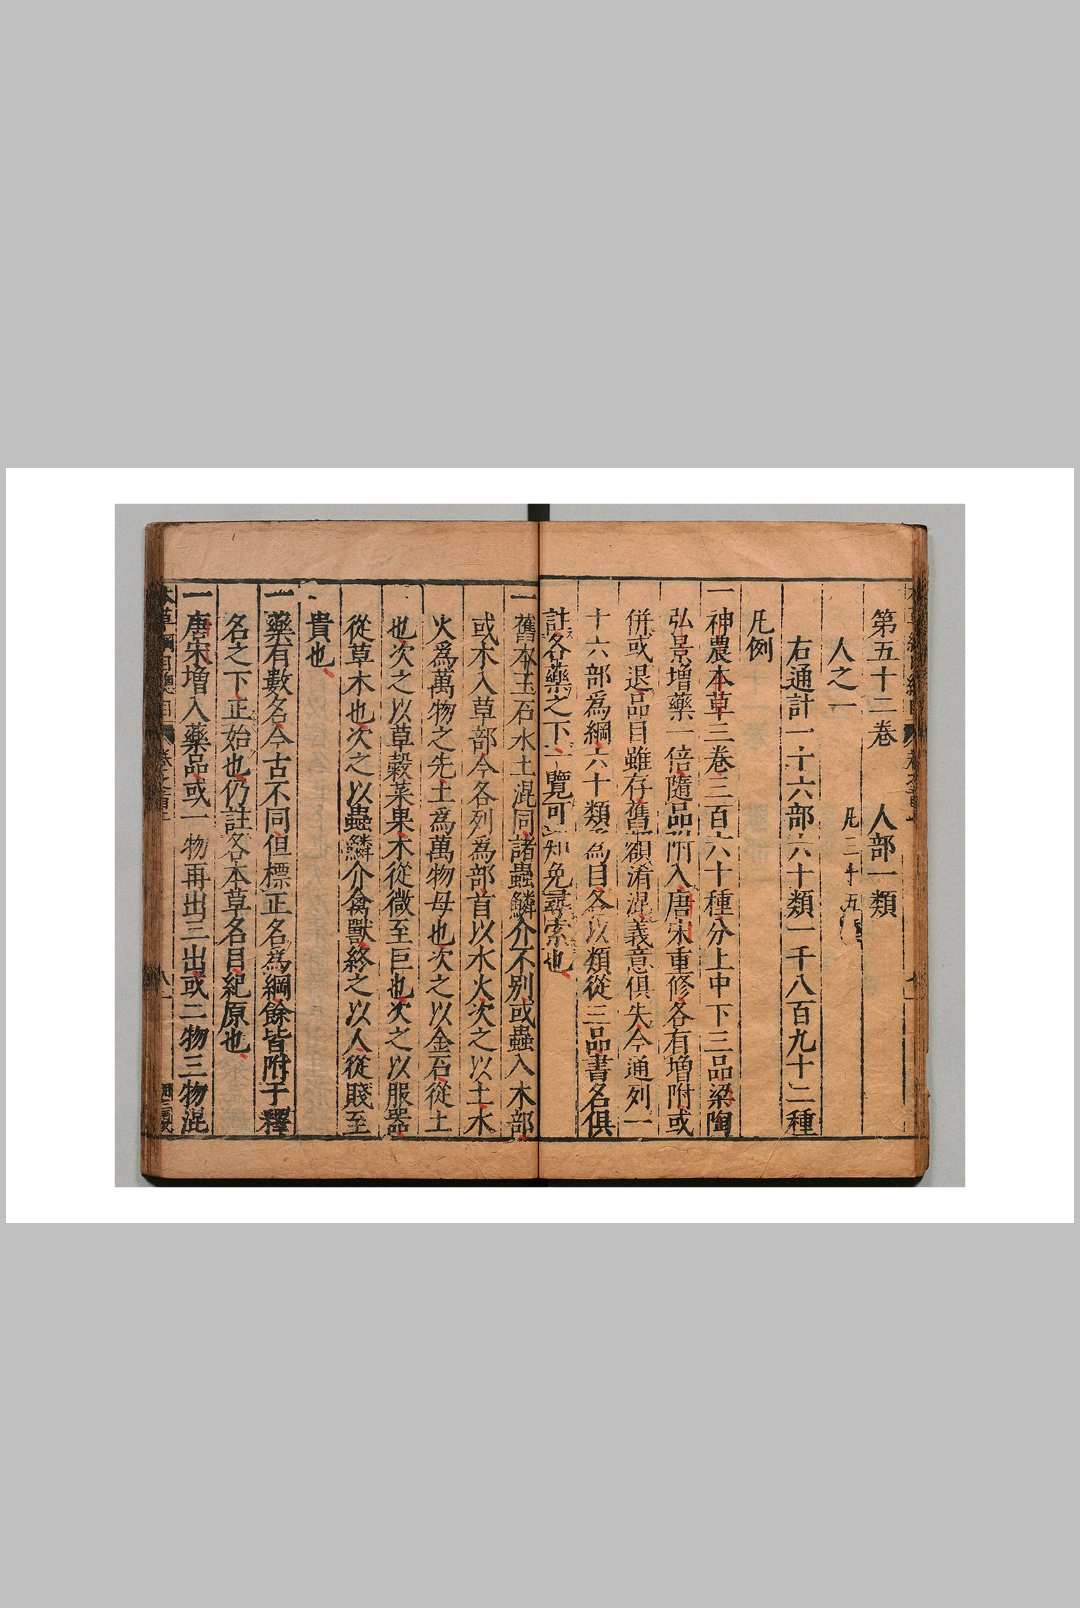 第五十二卷 人部一類
人之一 凡三十五種
右通計一十六部六十類一千八百九十二種
凡例
一神農本草三卷三百六十種分上中下三品梁陶
弘景增藥一倍隨品附入唐宋重修各有增附或
併或退品目雖存舊額淆混義意俱失今通列一
十六部為綱六十類為目各以類從三品書名俱
註各藥之下一覽可知免尋索也
一舊本玉石水土混同諸蟲鱗介不別或蟲入木部
或木入草部今各列為部首以水火次之以土水
火為萬物之先土為萬物母也次之以金石從土
也次之以草穀菜果木從微至巨也次之以服器
從草木也次之以蟲鱗介禽獸終之以人從賤至
貴也
一藥有數名今古不同但標正名為綱餘皆附于釋
名之下正始也仍註各本草名目紀原也
一唐宋增入藥品或一物再出三出或二物三物混
本草綱目總目 卷之首